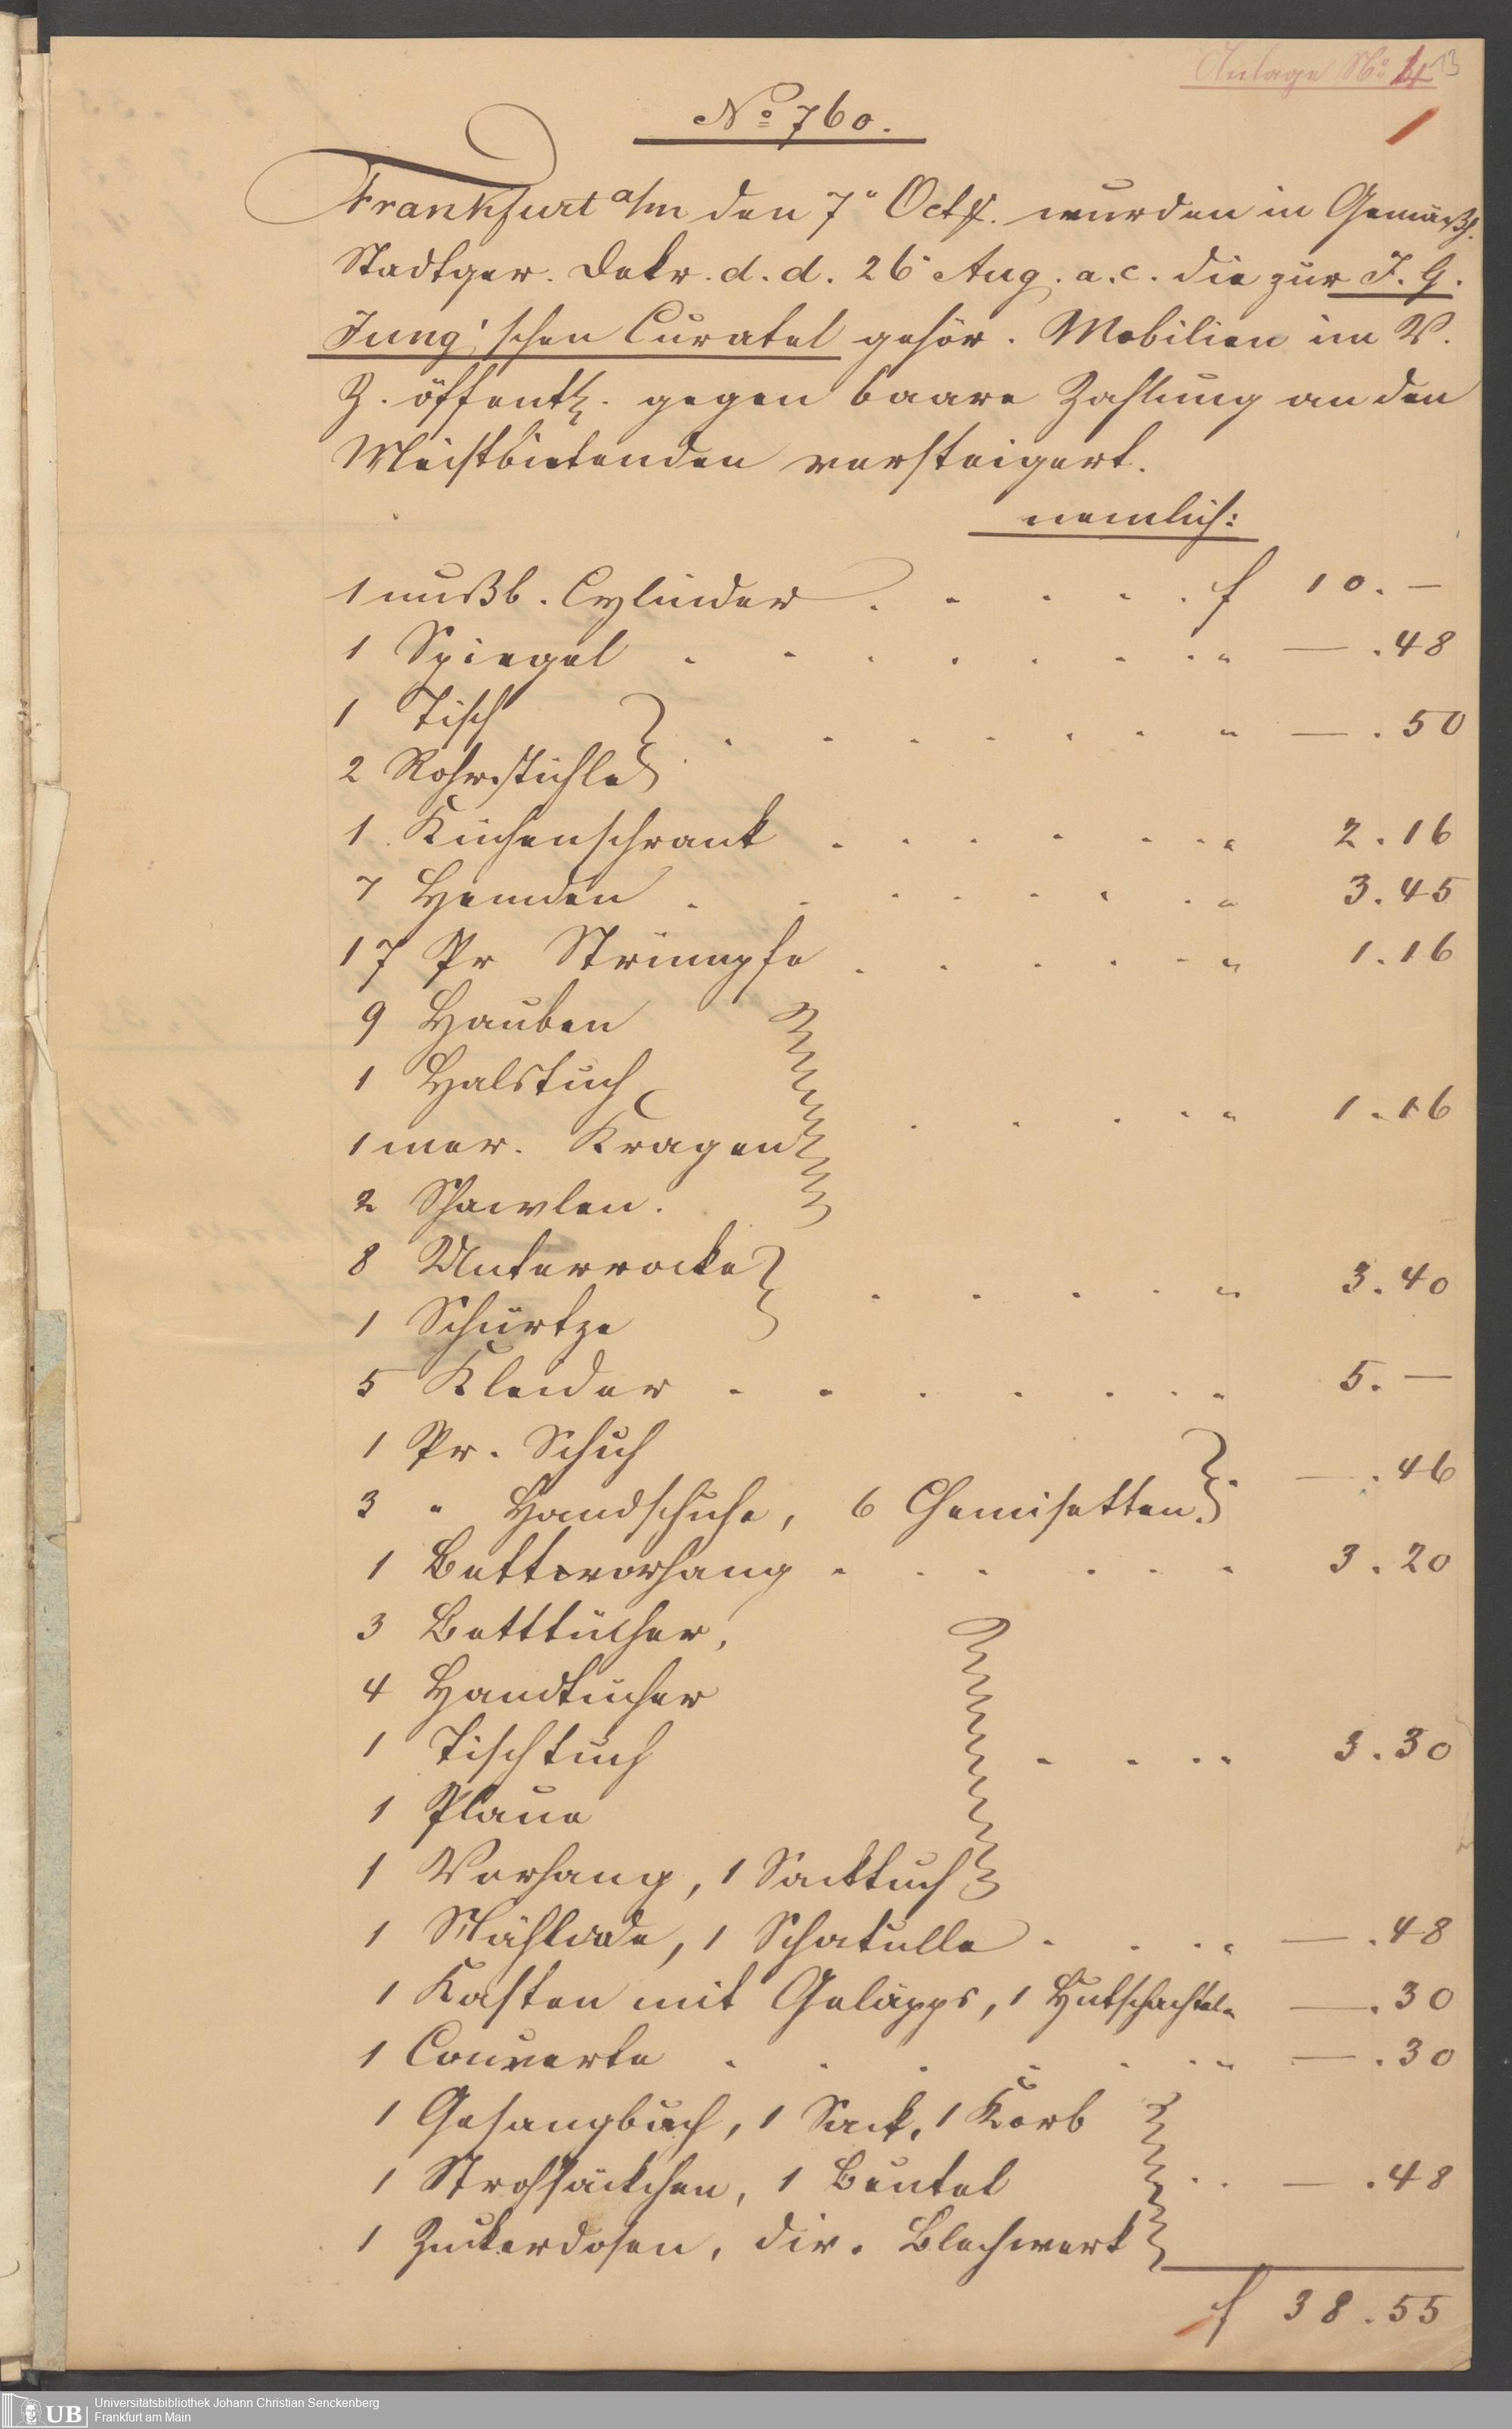 Anlage No 4 13
No 760.
Frankfurt a/m den 7n Octb. wurden in Gemäßh.
Stadtger. Dekr. d. d. 26n Aug. a. c. die zur J. G.
Jung'schen Curatel gehör. Mobilien im V.
Z. öffentl. gegen baare Zahlung an den
Meistbietenden versteigert.
nemlich:
1 nußb. Cylinder . . . . . f 10. —
1 Spiegel . . . . . . . „ — . 48
1 Tisch
2 Rohrstühle . . . . . . „ — . 50
1 Küchenschrank . . . . . . „ 2 . 16
7 Hemden . . . . . . . „ 3. 45
17 Pr Strümpfe . . . . . „ 1. 16
9 Hauben
1 Halstuch
1 mer. Kragen . . . . „ 1. 16
2 Shawlen.
8 Unterrocke
1 Schürtze . . . . „ 3. 40
5 Kleider . . . . . . „ 5. —
1 Pr. Schuh
3 „ Handschuhe, 6 Chemisetten. . — . 46
1 Bettvorhang . . . . . . 3 . 20
3 Betttücher,
4 Handtücher
1 Tischtuch . . . . 3 . 30
1 Plaue
1 Vorhang, 1 Sacktuch
1 Nählade, 1 Schatulle . . . „ — . 48
1 Kasten mit Geläpps, 1 Hutschachtel „ — . 30
1 Couverte . . . . . . „ — . 30
1 Gesangbuch, 1 Sack, 1 Korb
1 Strohsäckchen, 1 Beutel . . — . 48
1 Zuckerdosen, div. Blechwerk
f 38 . 55
UB
Universitätsbibliothek Johann Christian Senckenberg
Frankfurt am Main